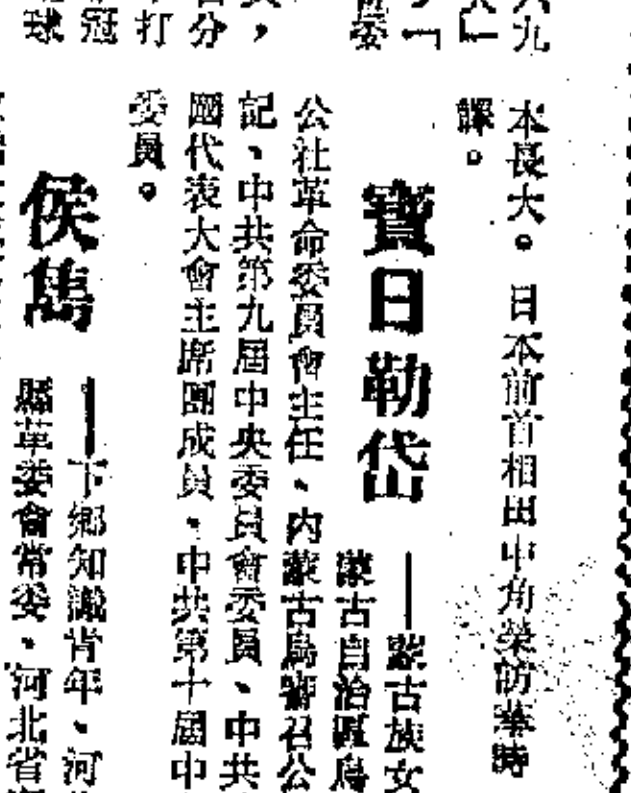 六九
本長大。日本前首相田中角榮訪華時
譯。
寶日勒岱
——蒙古族女
蒙古自治區烏
公社革命委員會主任、內蒙古烏審召公
記、中共第九屆中央委員會委員、中共
國代表大會主席團成員、中共第十屆中
委員。
侯雋
——下鄉知識青年、河
縣革委會常委、河北省
分,
打
冠
球